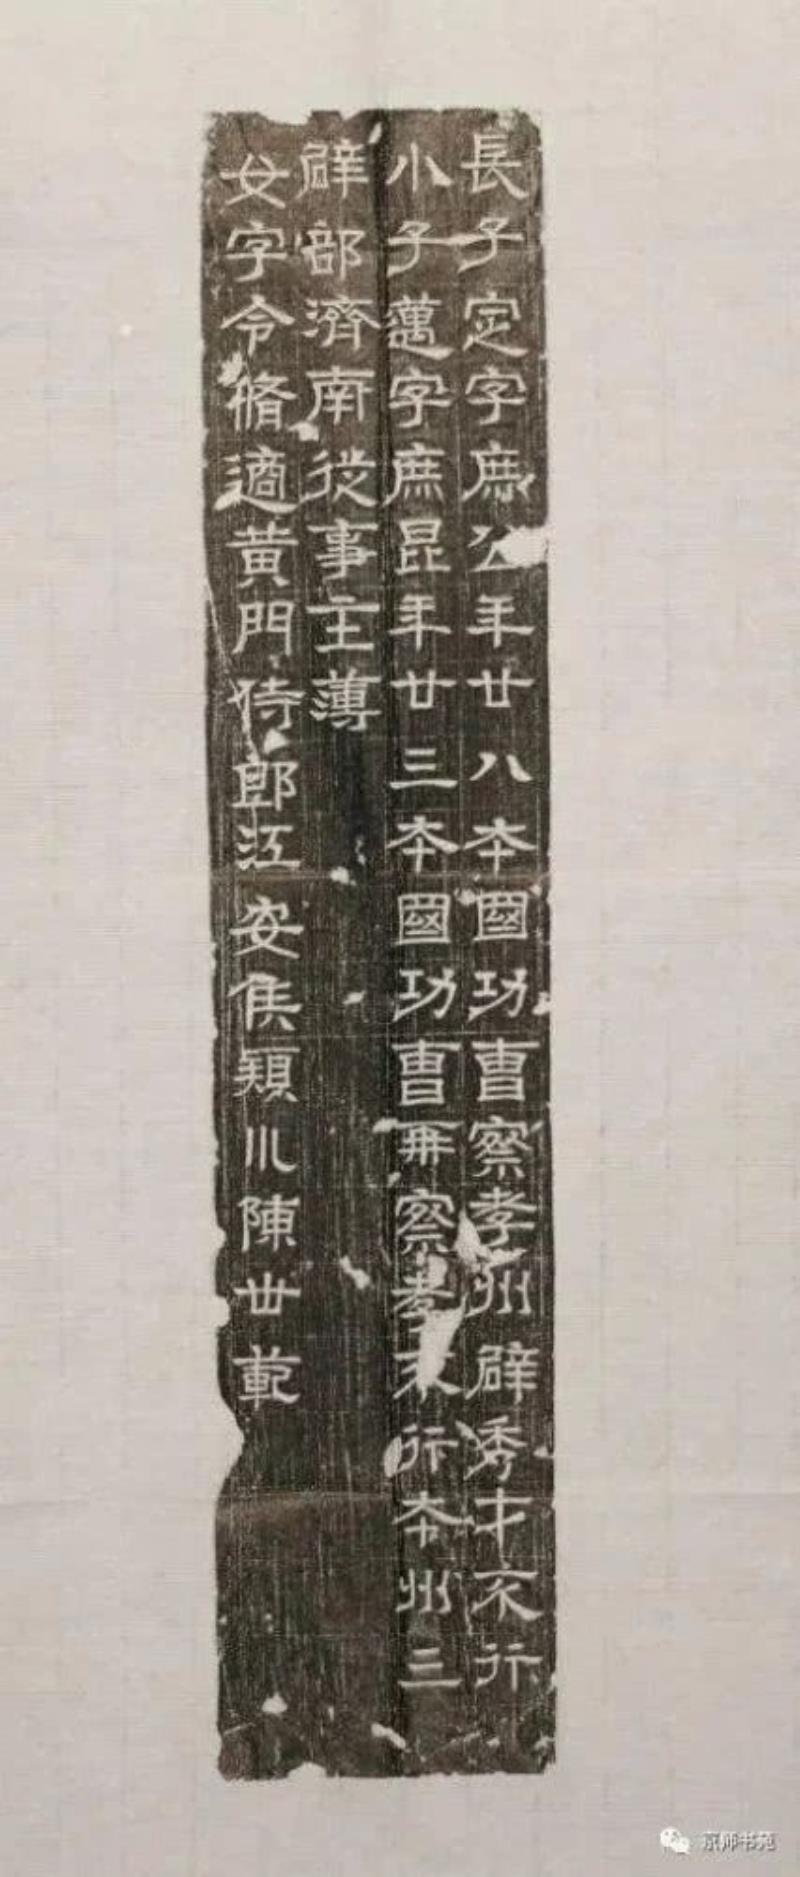 長子定字庶公年廿八本國功曹察孝州辟秀才不行
小子邁字庶昆年廿三本國功曹再察孝不行本州三
辟部濟南從事主薄
女字令脩適黃門侍郎江安侯潁川陳世範
京师书苑